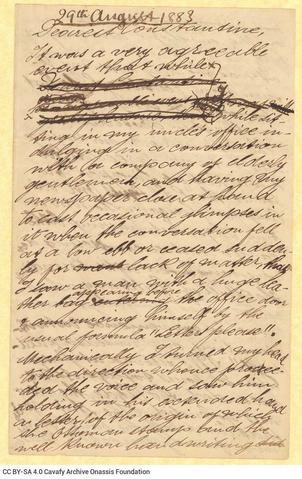 29th August 1883
Dearest Constantine,
It was a very agreeable
event that while
while sit
ting in my uncle's office in
dulging in a conversation
with a company of elderly
gentlemen, and having my
newspaper close at hand
to cast occasional glimpses in
it when the conversation fell
at a low ebb or ceased sudden
ly for want lack of matter, that
I saw a man with a huge lea
ther bag appearing before the office door
announcing himself by the
usual formula "Letters please".
Mechanically I turned my head
to the direction whence procee
ded the voice and saw him
holding in his extended hand
a letter, of the origin of which
the Ottoman stamps and the
well known handwriting
CC BY-SA 4.0 Cavafy Archive Onassis Foundation